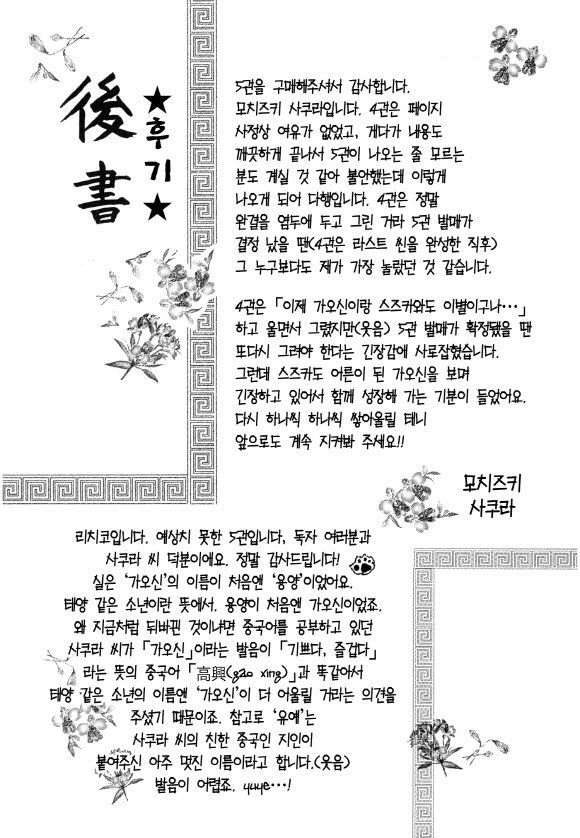 後書
★후기★
5권을 구매해주셔서 감사합니다.
모치즈키 사쿠라입니다. 4권은 페이지
사정상 여유가 없었고, 게다가 내용도
깨끗하게 끝나서 5권이 나오는 줄 모르는
분도 계실 것 같아 불안했는데 이렇게
나오게 되어 다행입니다. 4권은 정말
완결을 염두에 두고 그린 거라 5권 발매가
결정 났을 땐(4권은 라스트 씬을 완성한 직후)
그 누구보다도 제가 가장 놀랐던 것 같습니다.
4권은 「이제 가오신이랑 스즈카와도 이별이구나…」
하고 울면서 그렸지만(웃음) 5권 발매가 확정됐을 땐
또다시 그려야 한다는 긴장감에 사로잡혔습니다.
그런데 스즈카도 어른이 된 가오신을 보며
긴장하고 있어서 함께 성장해 가는 기분이 들었어요.
다시 하나씩 하나씩 쌓아올릴 테니
앞으로도 계속 지켜봐 주세요!!
모치즈키
사쿠라
리치코입니다. 예상치 못한 5권입니다, 독자 여러분과
사쿠라 씨 덕분이에요. 정말 감사드립니다!
실은 '가오신'의 이름이 처음엔 '용양'이었어요.
태양 같은 소년이란 뜻에서. 용양이 처음엔 가오신이었죠.
왜 지금처럼 뒤바뀐 것이냐면 중국어를 공부하고 있던
사쿠라 씨가 「가오신」이라는 발음이 「기쁘다, 즐겁다」
라는 뜻의 중국어 「高興(gao xing)」과 똑같아서
태양 같은 소년의 이름엔 '가오신'이 더 어울릴 거라는 의견을
주셨기 때문이죠. 참고로 '유예'는
사쿠라 씨의 친한 중국인 지인이
붙여주신 아주 멋진 이름이라고 합니다.(웃음)
발음이 어렵죠. yuye…!